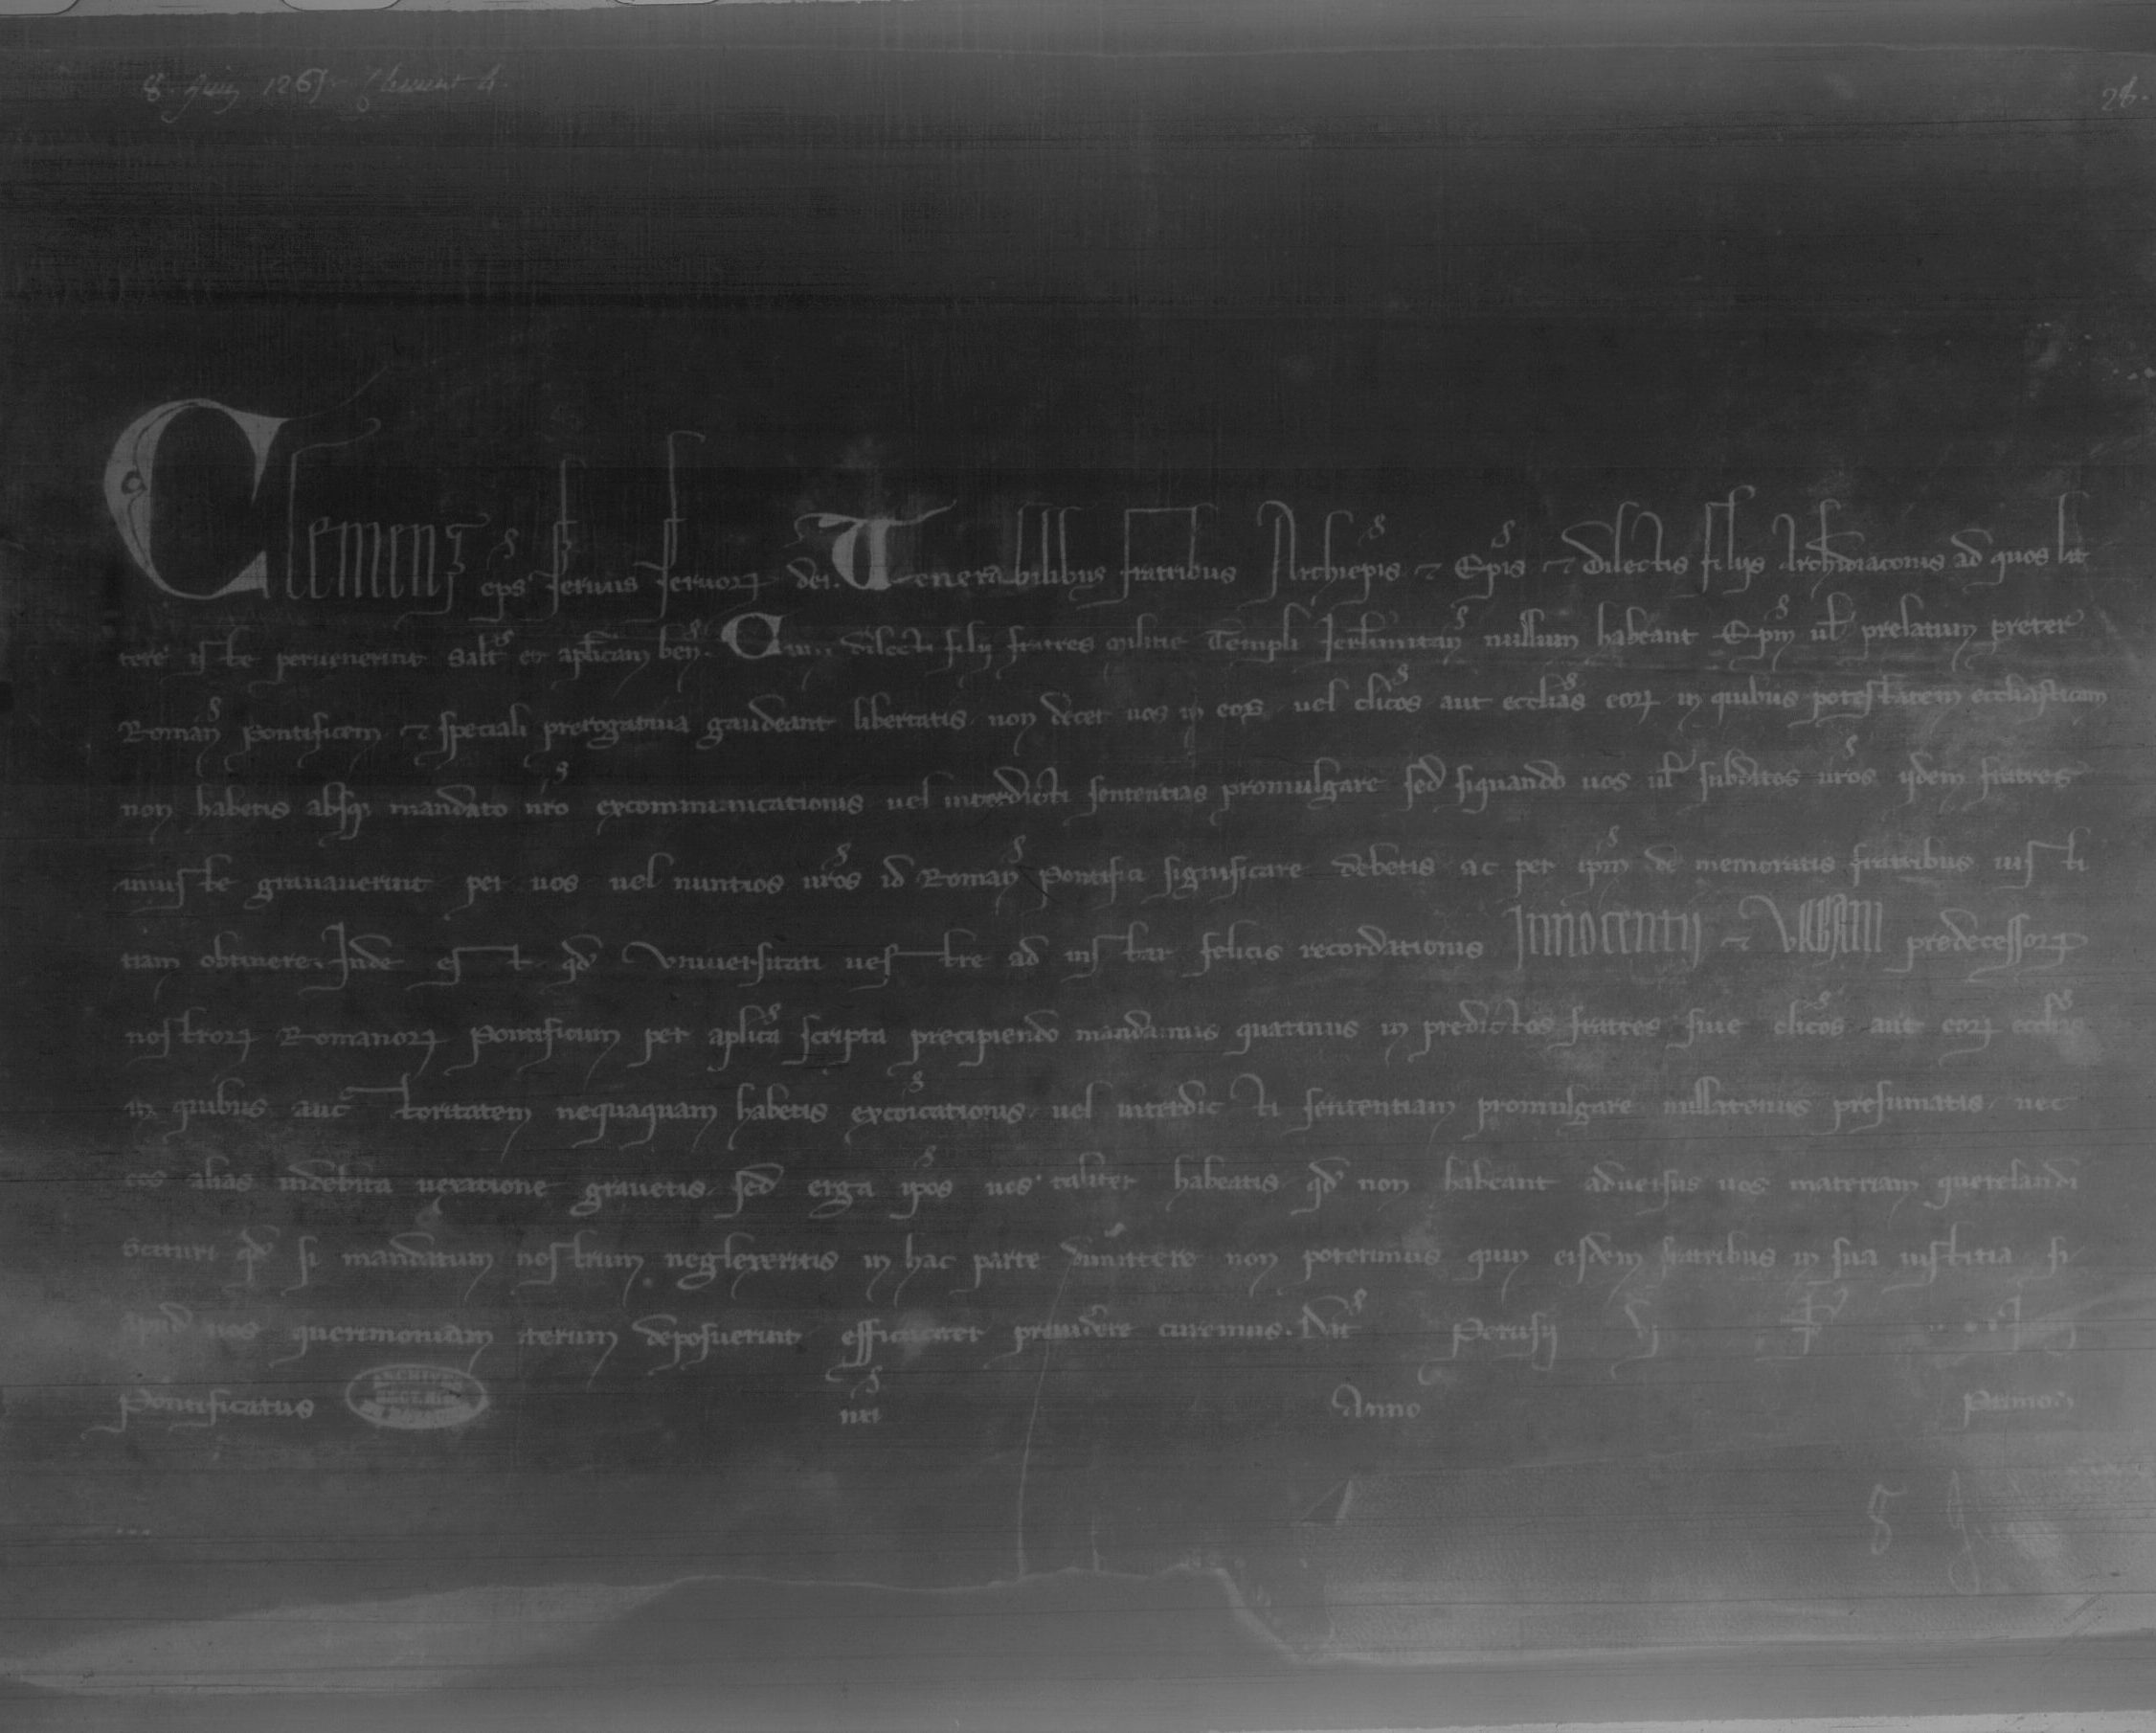 8. Juin 1265 Clement 4.
28.
Clemens eps seruus seruoꝝ dei. Venerabilibus fratribus Archiepis ⁊ Epis ⁊ Dilectis filijs Archidiaconis ad quos lit
tere iste peruenerint Salt et aplicam ben. Cum dilecti filij fratres militie Templi Ierlimitan nullum habeant Epm ul prelatum preter
Roman Pontificem ⁊ speciali prerogatiua gaudeant libertatis non decet uos in eos uel clicos aut ecclias eoꝝ in quibus potestatem ecclesiasticam
non habetis absqꝫ mandato nro excommunicationis uel interdicti sententias promulgare sed siquando uos ul subditos uros ijdem fratres
iniuste grauauerint per uos uel nuntios uros id Roman Pontifici significare debetis ac per ipm de memoratis fratribus iusti
tiam obtinere. Inde est qd Vniuersitati uestre ad instar felicis recordationis Innocentij ⁊ Urbani predecessoꝝ
nostroꝝ Romanoꝝ Pontificum per aplica scripta precipiendo mandamus quatinus in predictos fratres siue clicos aut eoꝝ ecclias
in quibus auctoritatem nequaquam habetis excoicationis uel interdicti sententiam promulgare nullatenus presumatis nec
eos alias indebita uexatione grauetis sed erga ipos uos taliter habeatis qd non habeant aduersus uos materiam querelandi
scituri qd si mandatum nostrum neglexeritis in hac parte dimittere non poterimus quin eisdem fratribus in sua iustitia si
apud nos querimoniam iterum deposuerint efficaciter prouidere curemus. Dat Perusij vj
Pontificatus nri Anno Primo
8